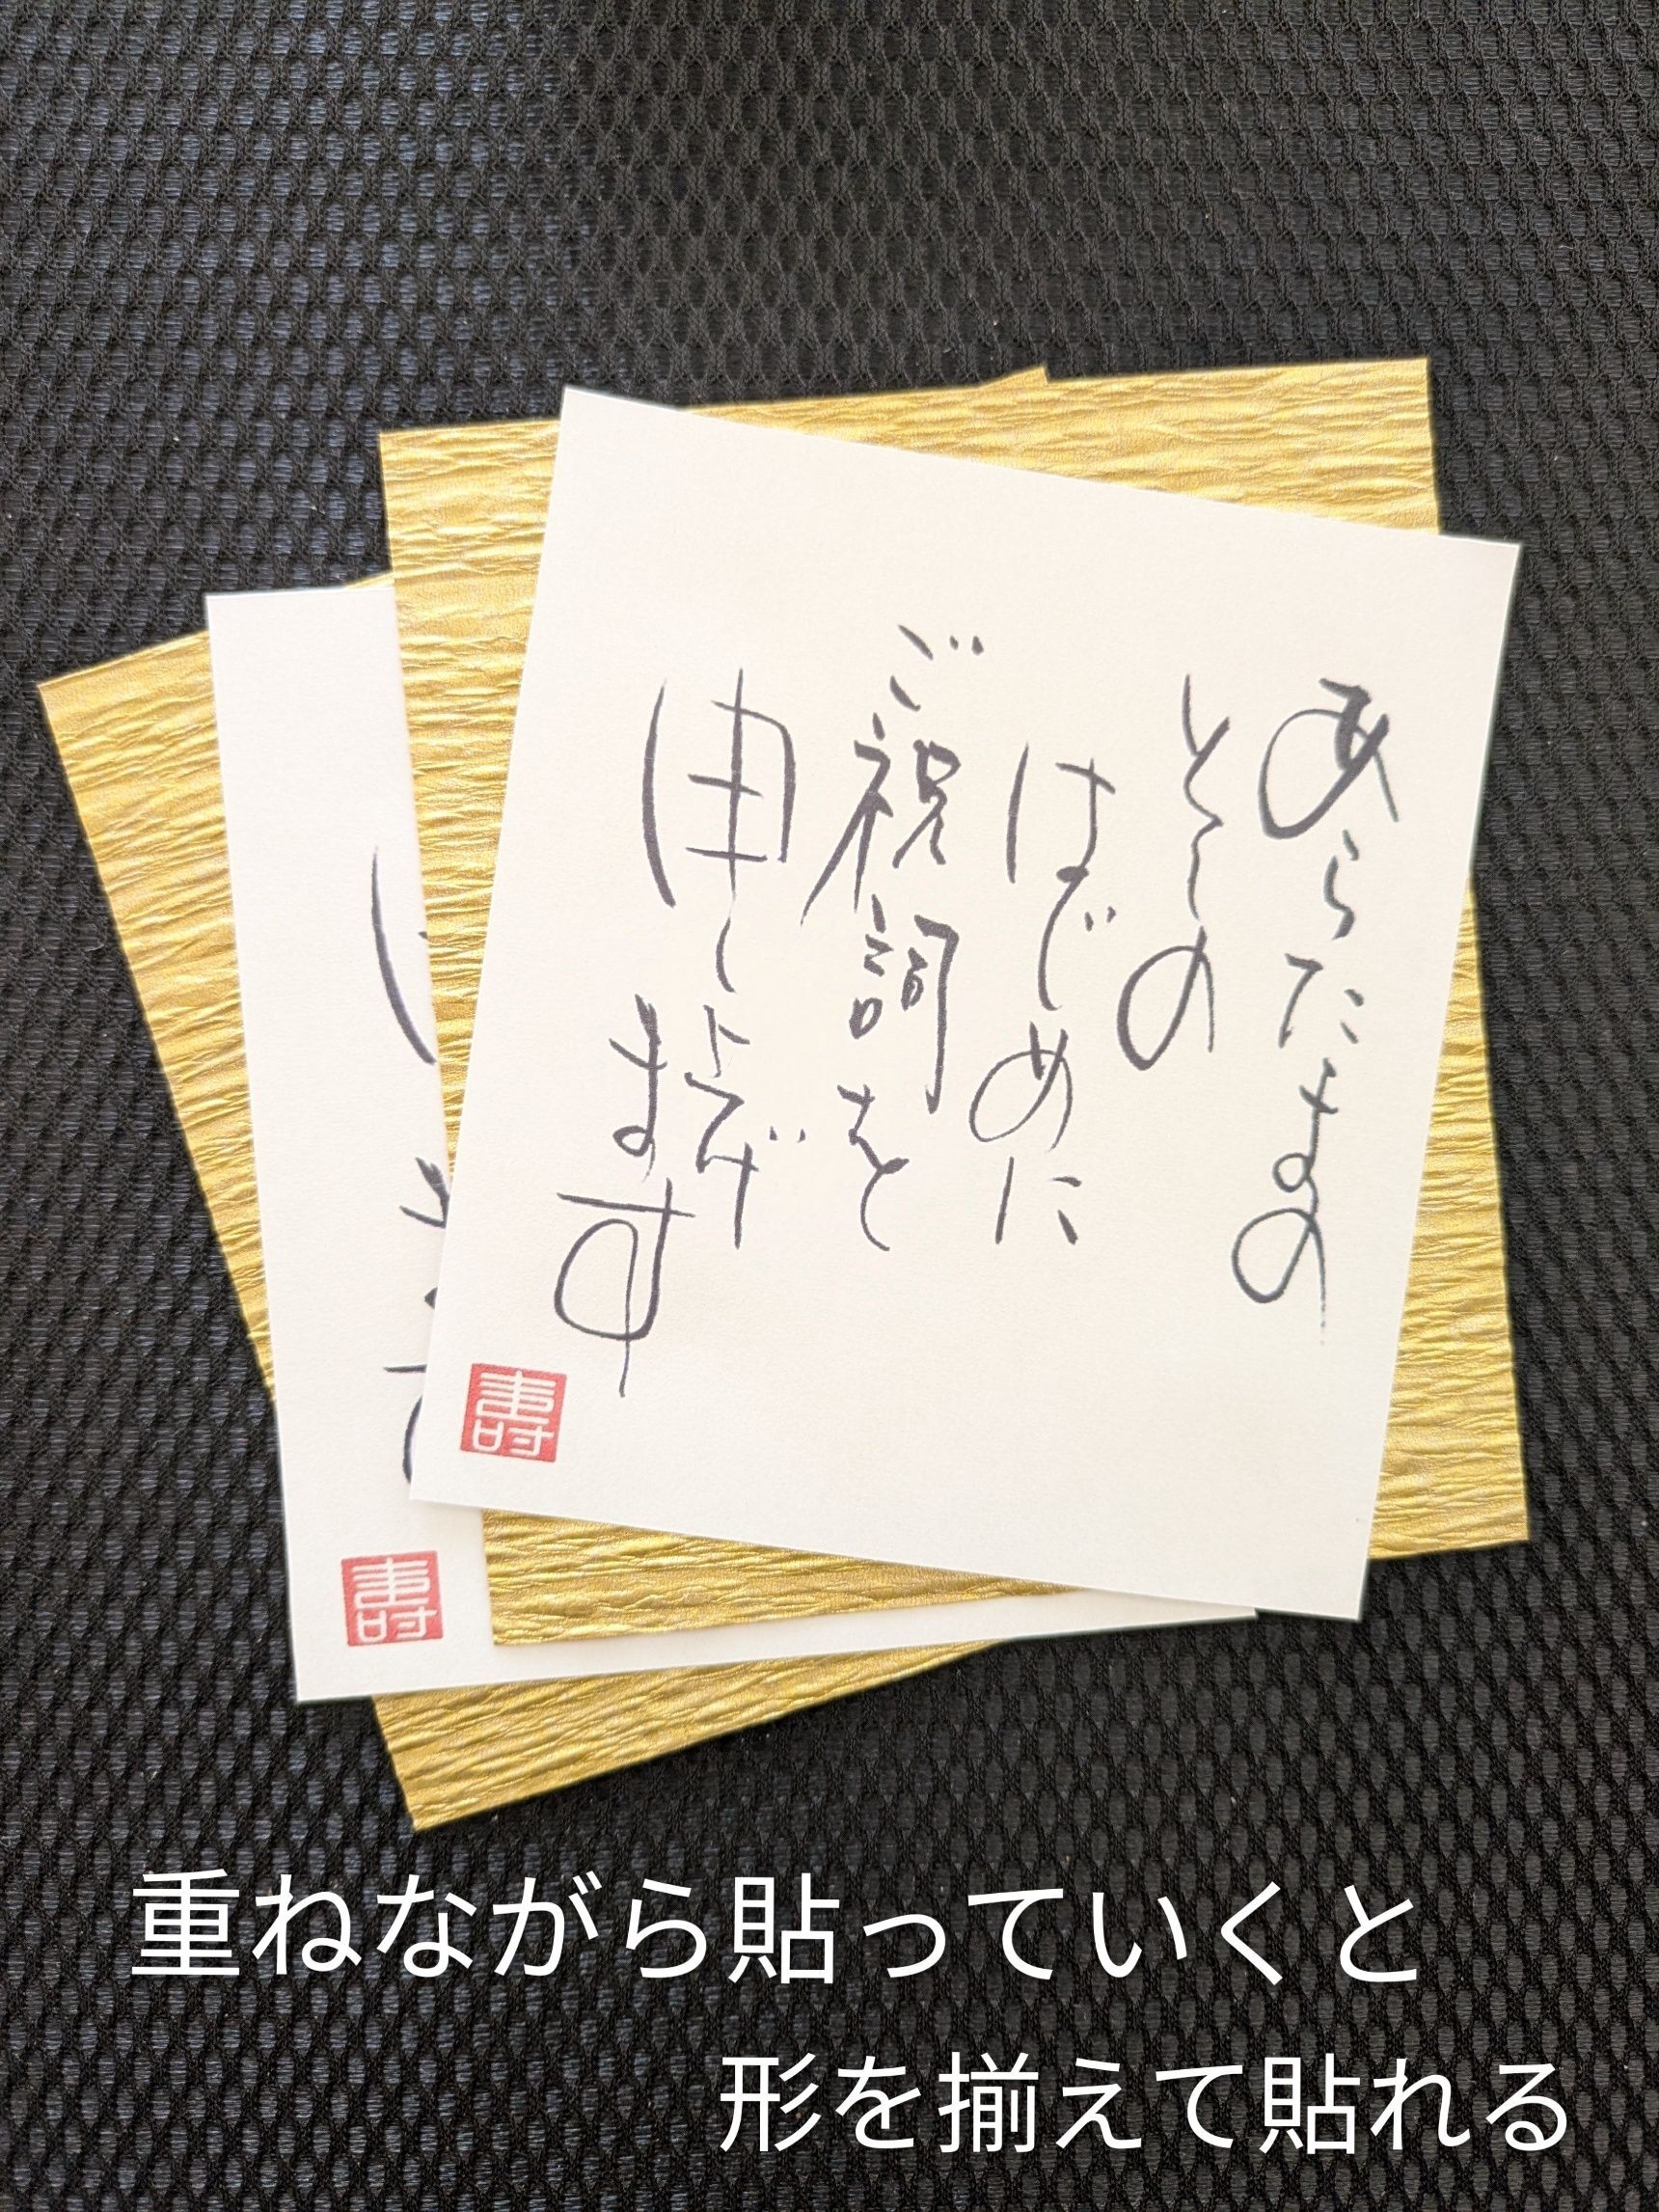 あらたまの
としの
はじめに
ご祝詞を
申し上げ
ます
壽
壽
重ねながら貼っていくと
形を揃えて貼れる